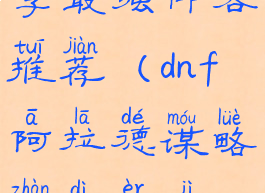 最强阵容
tuī jiàn
推荐（dnf
ā lā dé móu lüè
阿拉德谋略
zhàn dì èr jì